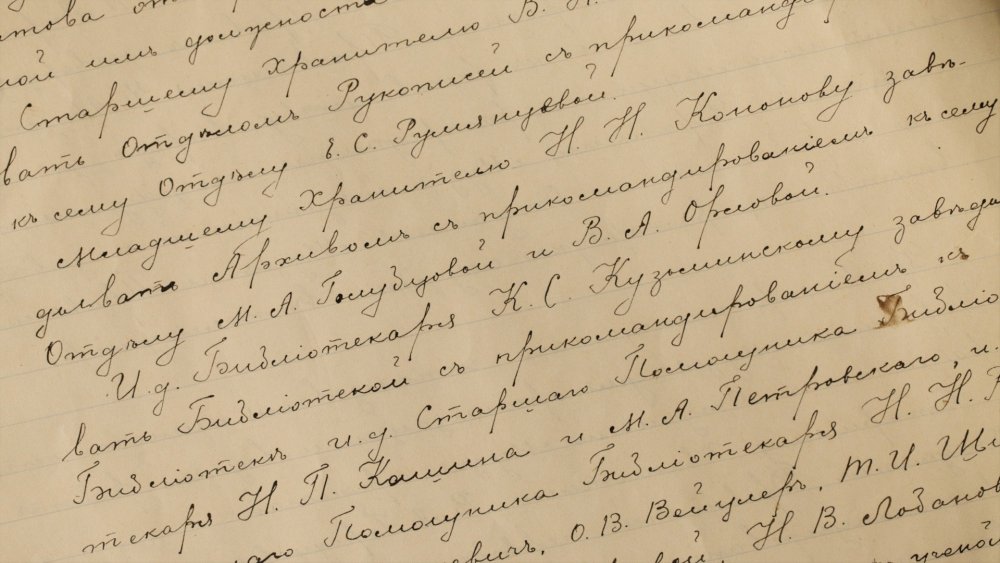 ной имъ должност
Старшему Хранителю В.
вать Отдѣломъ Рукописей съ прикоманди
къ сему Отдѣлу Е. С. Румянцевой.
Младшему Хранителю Н. Н. Кононову завѣ-
дывать Архивомъ съ прикомандированіемъ къ сему
Отдѣлу М. А. Голубцовой и В. А. Орловой.
И. д. Библіотекаря К. С. Кузьминскому завѣды
вать Библіотекой съ прикомандированіемъ къ
Библіотекѣ и. д. Старшаго Помощника Библіо
текаря Н. П. Кашина и М. А. Петровскаго, и.
аго Помощника Библіотекаря Н. Н.
евичъ, О. В. Вейцлеръ, М. И. Щи
вой, Н. В. Лобанов
ученой